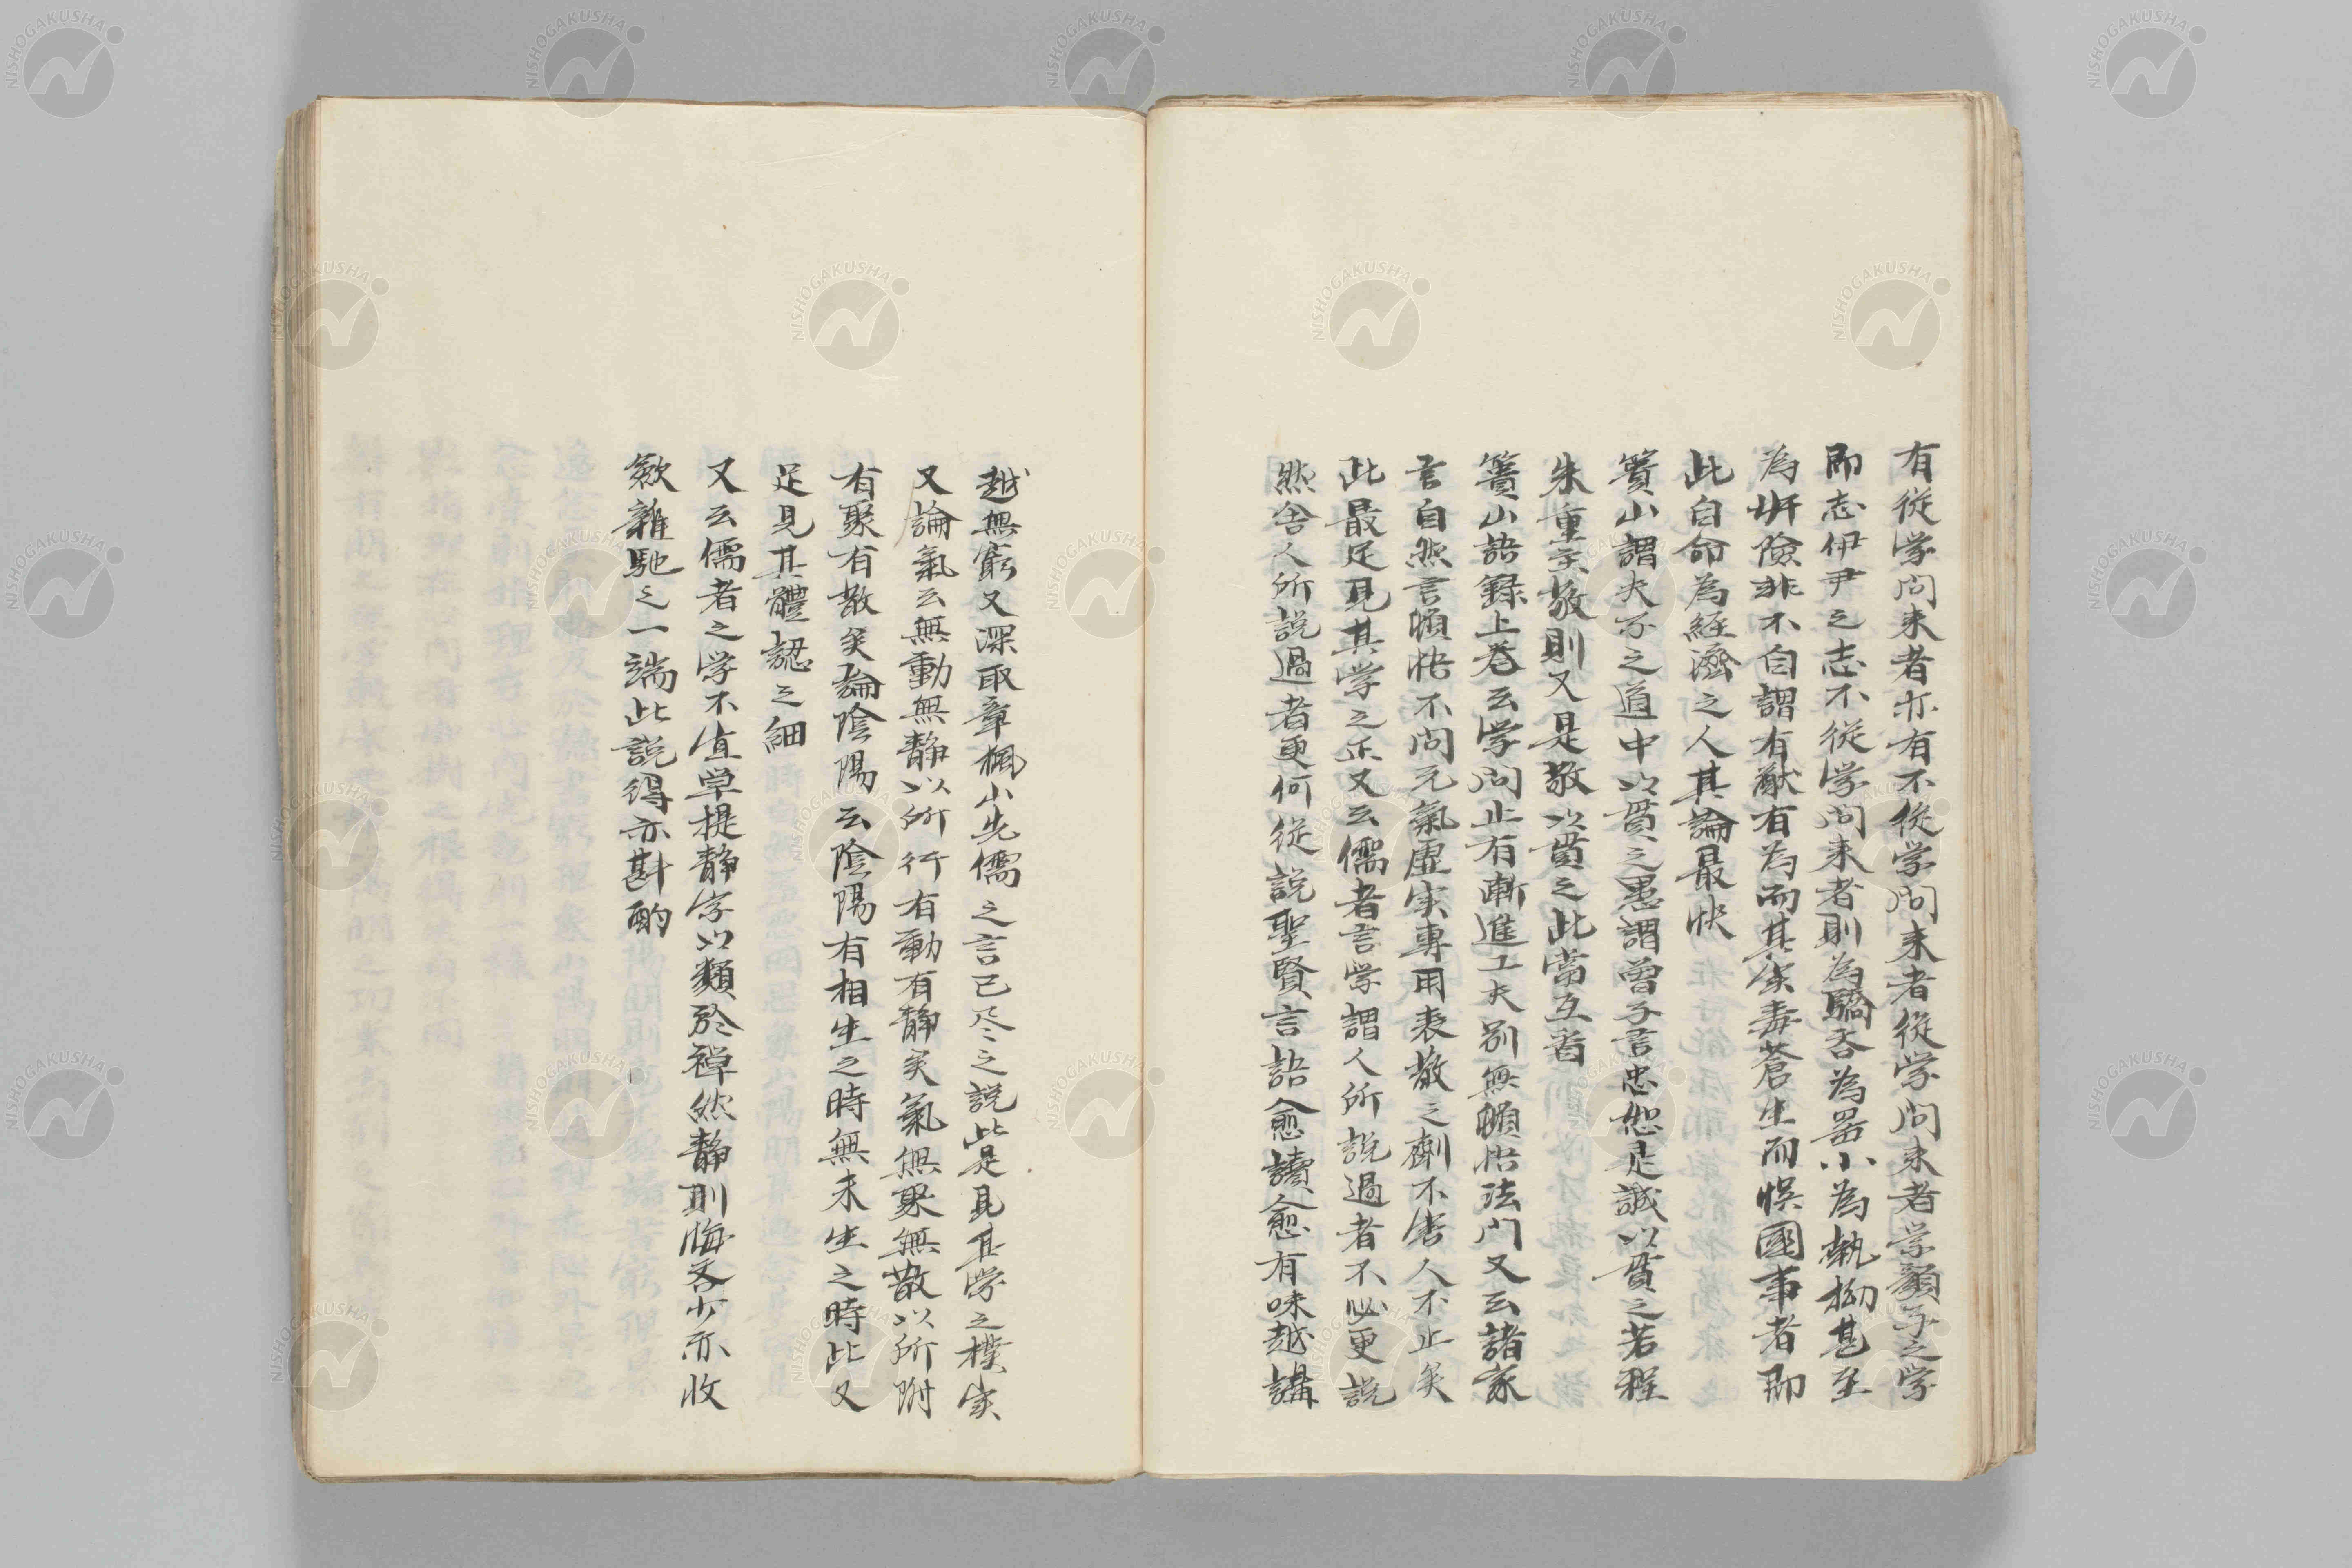 有従学問来者亦有不從学問来者從学問来者学顔子之学
即志伊尹之志不從学問来者則為驕吝為器小為執拗甚至
為奸險非不自謂有猷有為而其実毒蒼生而悞國事者即
此自命為経濟之人其論最快
簣山謂夫子之道中以貫之愚謂曽子言忠恕是誠以貫之若程
朱重主敬則又是敬以貫之此當互看
簣山語録上巻云学問止有漸進工夫別無頓悟法門又云諸家
言自然言頓悟不问元氣虚実專用表散之劑不害人不止矣
此最足見其学之正又云儒者言学謂人所説過者不必更説
然舎人所説過者更何從説聖賢言語愈讀愈有味越講
越無窮又深取章楓山先儒之言已尽之説此是見其学之樸実
又論氣云無動無静以所行有動有静矣氣無聚無散以所附
有聚有散矣論陰陽云陰陽有相生之時無未生之時此又
足見其體認之細
又云儒者之学不宜单提静字以類於禅然静則悔吝少亦收
斂雜馳之一端此説得亦斟酌
NISHOGAKUSHA